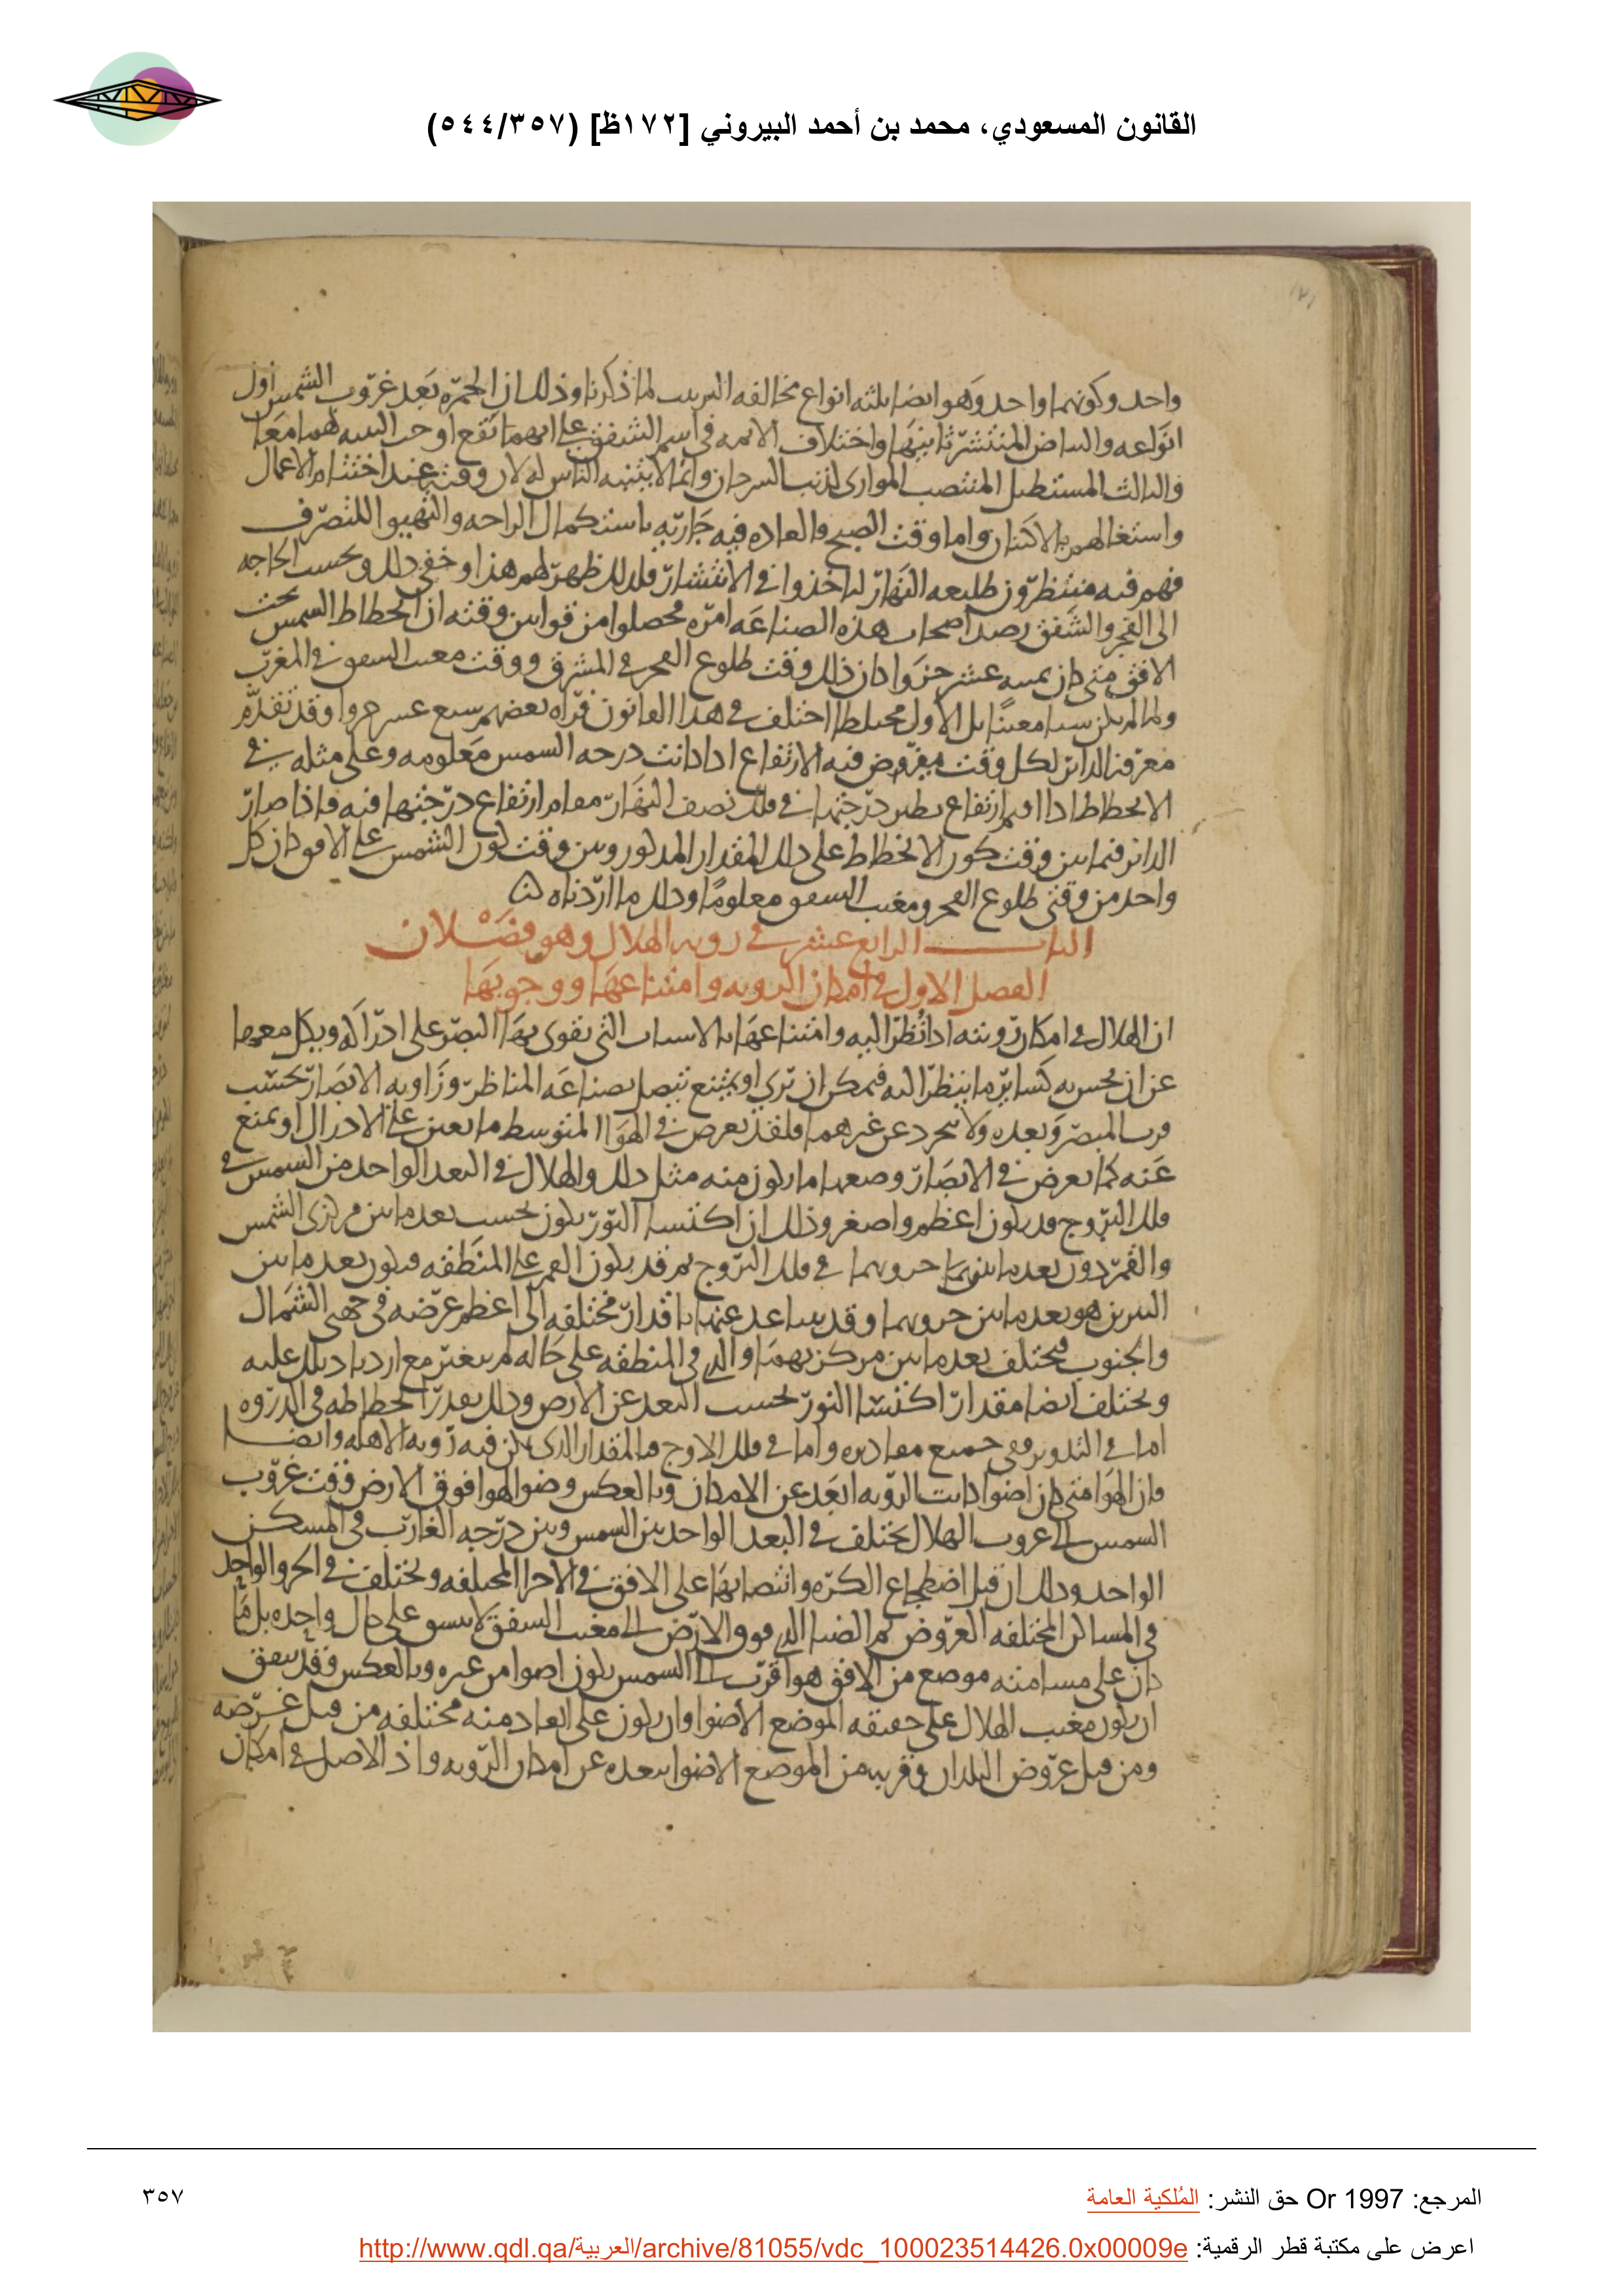 القانون المسعودي، محمد بن أحمد البيروني [١٧٢ظ] (٥٤٤/٣٥٧)
واحد وكونهما واحد وهو ايضا ثلثه انواع مخالفه الترتيب لما ذكرنا وذلك ان الحمره بعد غروب الشمس اول
انواعه والبياض المنتشر ثانيها واختلاف الايمه في اسم الشفق على ايهما تقع اوجب التنبه لهما معا
والثالث المستطيل المنتصب الموازى لذنب السرحان وانما لا يتنبه الناس له لان وقته عند اختتام الاعمال
واشتغالهم بالاكتنان واما وقت الصبح فالعاده فيه جاريه باستكمال الراحه والتهيو للتصرف
فهم فيه منتظرون طليعه النهار لياخذوا في الانتشار فلذلك ظهر لهم هذا وخفى ذلك وبحسب الحاجه
الى الفجر والشفق رصد اصحاب هذه الصناعه امره فحصلوا من قوانين وقته ان انحطاط الشمس تحت
الافق متى كان ثمنيه عشر جزوا كان ذلك وقت طلوع الفجر في المشرق ووقت مغيب الشفق في المغرب
ولما لم يكن شيا معينا بل الاول مختلطا اختلف في هذا القانون فراه بعضهم سبع عشر جزوا وقد تقدم
معرفه الداير لكل وقت مفروض فيه الارتفاع اذا كانت درجه الشمس معلومه وعلى مثله في
الانحطاط اذا اقيم ارتفاع نظير درجتها في فلك نصف النهار مقام ارتفاع درجتها فيه فاذا صار
الداير فيما بين وقت كون الانحطاط على ذلك المقدار المذكور وبين وقت كون الشمس على الافق كان كل
واحد من وقتى طلوع الفجر ومغيب الشفق معلوما وذلك ما اردناه
الباب الرابع عشر في رويه الهلال وهو فصلان
الفصل الاول في امكان الرويه وامتناعها ووجوبها
ان الهلال في امكان رويته اذا نظر اليه وامتناعها بالاسباب التى تقوى بها البصر على ادراكه ويكل معها
عن ان يحس به كساير ما ينظر اليه فيمكن ان يرى او يمتنع يتصل بصناعه المناظر وزاويه الابصار بحسب
قرب المبصر وبعده ولا يتجرد عن غيرهما فلقد يعرض في الهوا المتوسط ما يعين على الادراك او يمنع
عنه كما يعرض في الابصار وضعها ما يكون منه مثل ذلك والهلال في البعد الواحد من الشمس في
فلك البروج قد يكون اعظم واصغر وذلك ان اكتسا النور يكون بحسب بعد ما بين مركزى الشمس
والقمر دون بعد ما بينهما في فلك البروج ثم قد يكون القمر على المنطقه فيكون بعد ما بين
النيرين هو بعد ما بين جزويهما وقد يتباعد عنها باقدار مختلفه الى اعظم عرضه في جهتى الشمال
والجنوب فيختلف بعد ما بين مركزيهما والذى في المنطقه على حاله لم يتغير مع ازدياد ذلك عليه
ويختلف ايضا مقدار اكتسا النور بحسب البعد عن الارض وذلك بقدر انحطاطه في الذروه
اما في التدوير ففى جميع مقاديره واما في فلك الاوج فالمقدار الذى يمكن فيه رويه الاهله وايضا
فان الهوا متى كان اضوا كانت الرويه ابعد عن الامكان وبالعكس وضو الهوا فوق الارض وقت غروب
الشمس الى غروب الهلال يختلف في البعد الواحد بين الشمس وبين درجه الغارب في المسكن
الواحد وذلك ان قبل اضطجاع الكره وانتصابها على الافق في الاجزا المختلفه ويختلف في الجزو الواحد
في المساكن المختلفه العروض ثم الضيا الذى فوق الارض الى مغيب الشفق لا يبقى على حال واحده بل ما
كان على مسامته موضع من الافق هو اقرب الى الشمس يكون اضوا من غيره وبالعكس فقد يتفق
ان يكون مغيب الهلال على حقيقه الموضع الاضوا وان يكون على ابعاد منه مختلفه من قبل عرضه
ومن قبل عروض البلدان وقربه من الموضع الاضوا يبعده عن امكان الرويه واذ الاصل في امكان
المرجع: Or 1997 حق النشر: المُلكية العامة
٣٥٧
اعرض على مكتبة قطر الرقمية: http://www.qdl.qa/العربية/archive/81055/vdc_100023514426.0x00009e